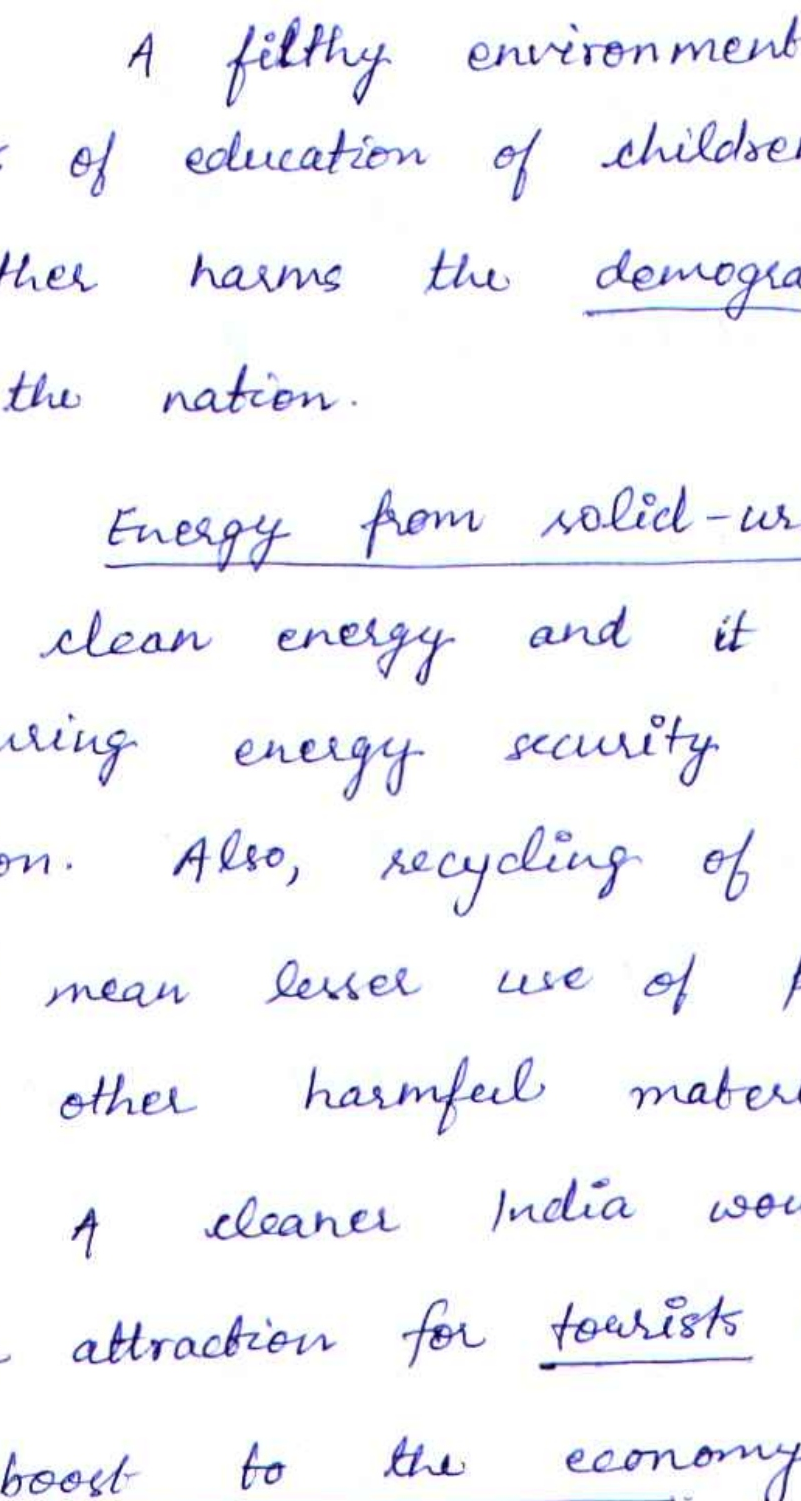 A filthy environment
of education of children
ther harms the demogra
the nation.
Energy from solid-w
clean energy and it
uring energy security
on. Also, recycling of
mean lesser use of p
other harmful materi
A cleaner India wou
attraction for tourists
boost to the economy